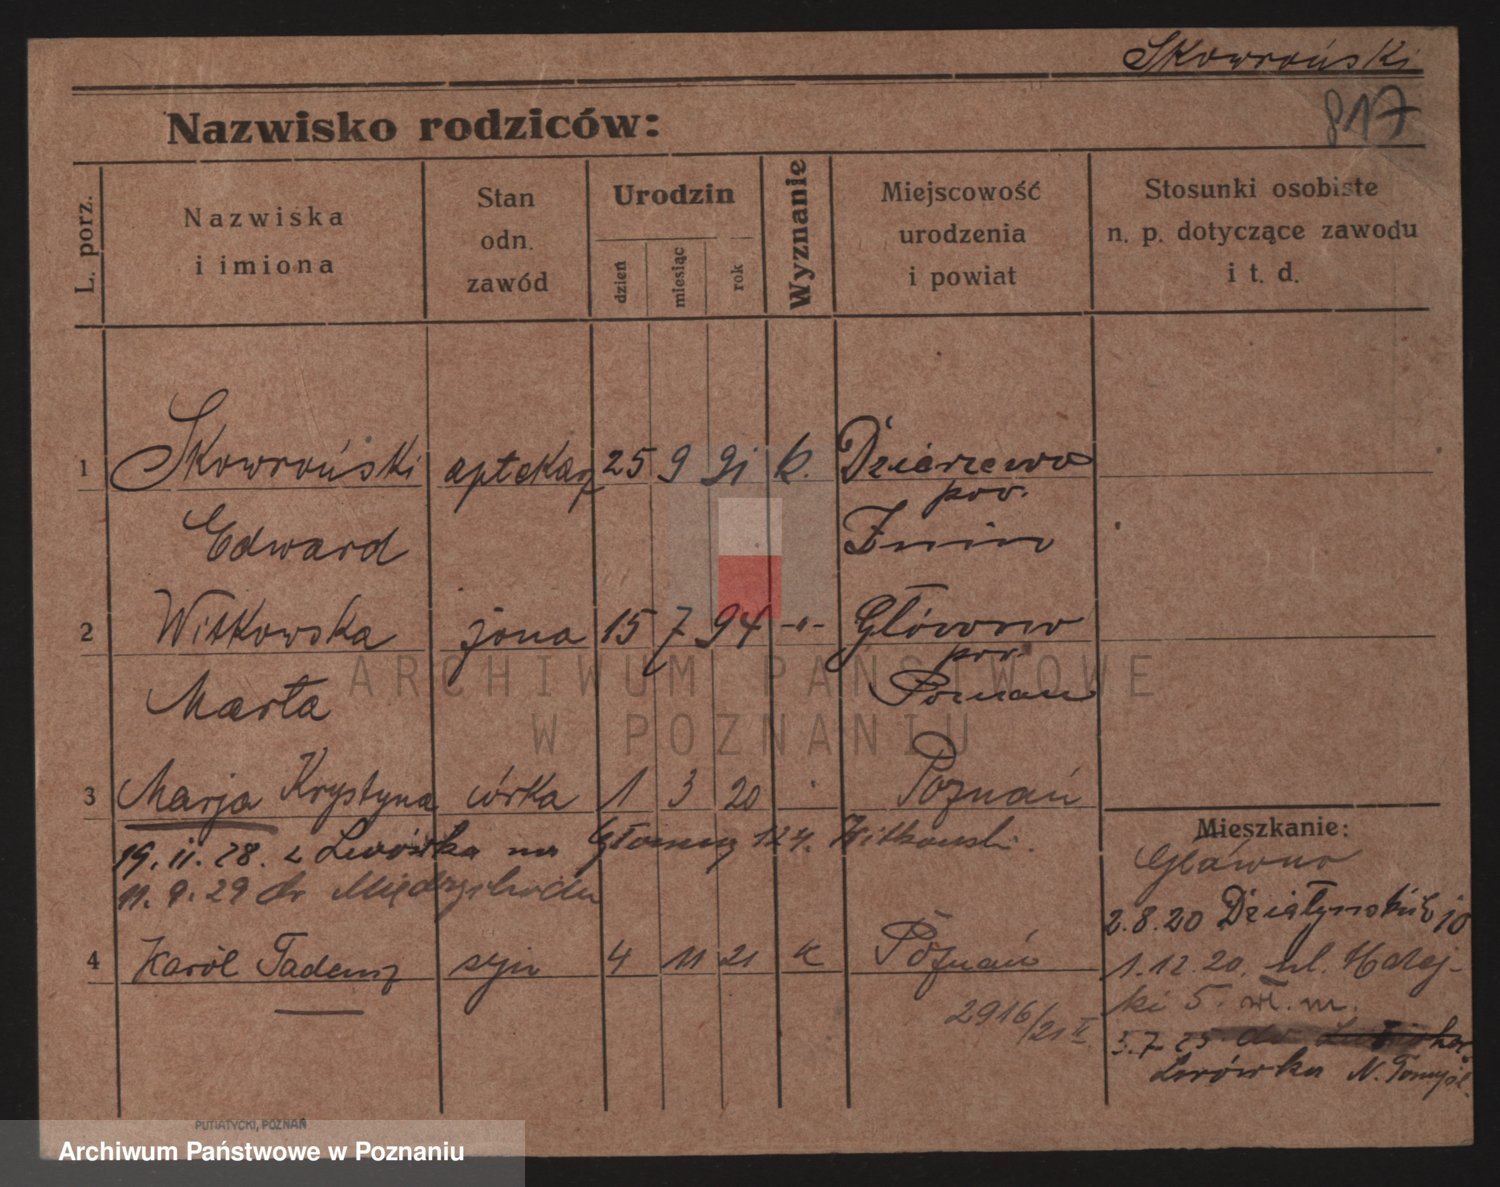 Skowroński
817
Nazwisko rodziców:
L. porz.
Nazwiska
i imiona
Stan
odn.
zawód
Urodzin
dzień
miesiąc
rok
Wyznanie
Miejscowość
urodzenia
i powiat
Stosunki osobiste
n. p. dotyczące zawodu
i t. d.
1 Skowroński aptekarz 25 9 91 k.
pow.
Edward Żnin
2 Witkowska żona 15 7 94 -"- Główno
pow.
Marta Poznań
3 Marja Krystyna córka 1 3 20 Poznań
Mieszkanie:
19. 11. 28. z Lwówka na 124. Witkowski.
Główno
11. 9. 29 do Międzychodu
2.8.20 Działyńskich 10
4 Karol Tadeusz syn 4 11 21 k Poznań
1.12.20. ul. Matej-
ki 5. m.
2916/21 II.
5.7.25 do
Lwówka N. Tomyśl.
PUTIATYCKI, POZNAŃ
ARCHIWUM PAŃSTWOWE
W POZNANIU
Archiwum Państwowe w Poznaniu